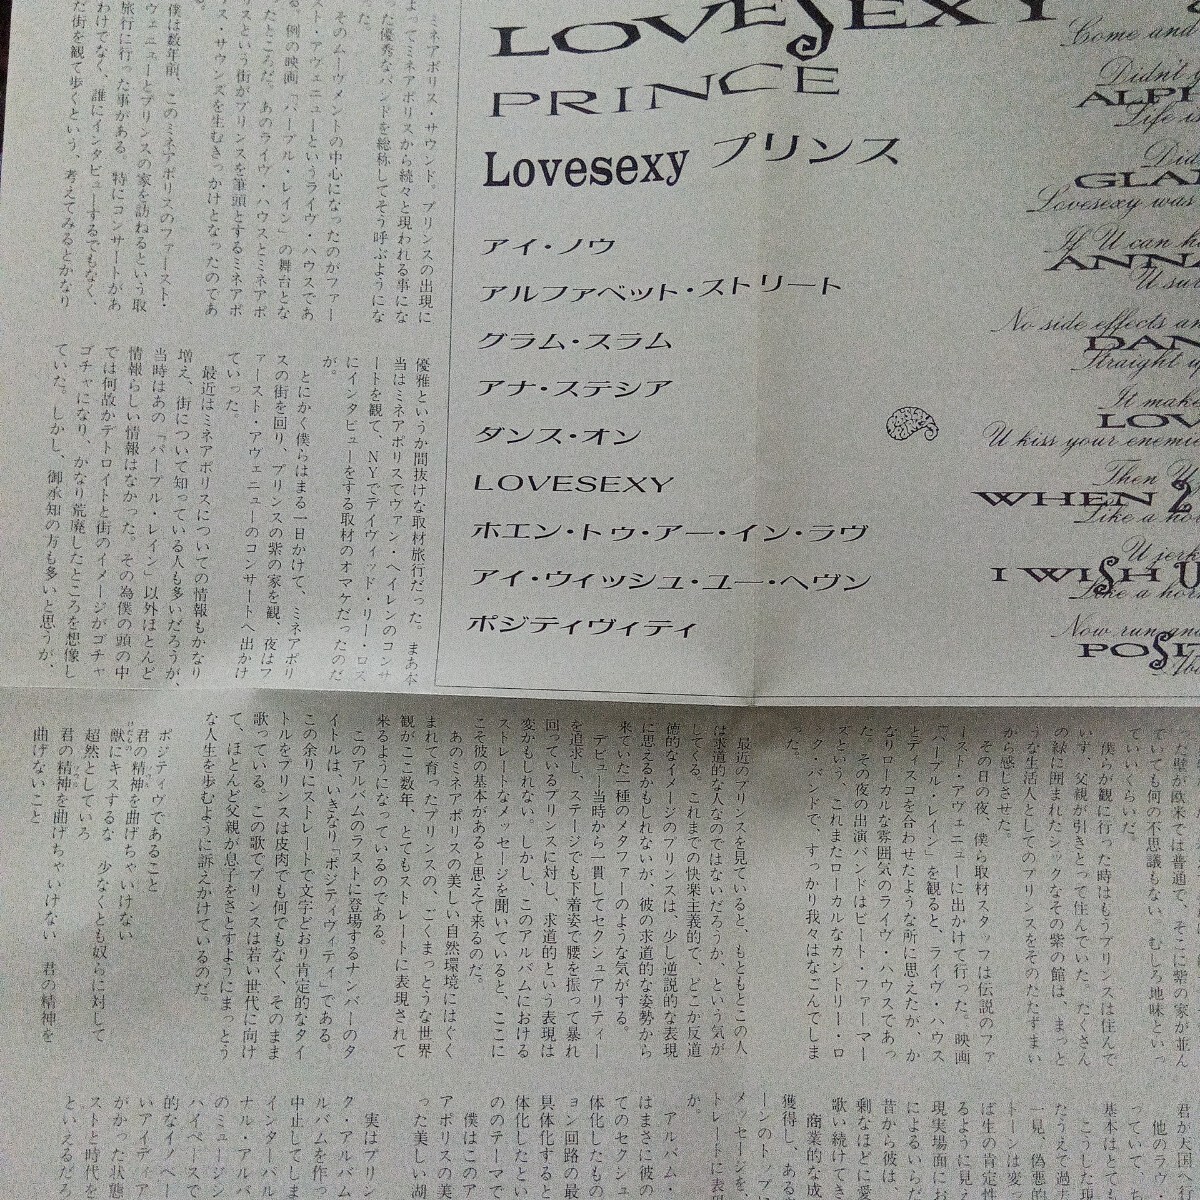 LOVESEXY
PRINCE
Lovesexy プリンス
アイ・ノウ
アルファベット・ストリート
グラム・スラム
アナ・ステシア
ダンス・オン
LOVESEXY
ホエン・トゥ・アー・イン・ラヴ
アイ・ウィッシュ・ユー・ヘヴン
ポジティヴィティ
Come and
Didn't
ALP
Life is
Did
GLA
Lovesexy was
If U can
ANNA
U sur
No side effects an
DAN
Straight u
It make
LOV
U kiss your enemie
Then
WHEN 2
Like a ho
U jerk
I WISH U
Like a horn
Now run and
POSIT
ミネアポリス・サウンド。プリンスの出現に
よってミネアポリスから続々と現われる事にな
った優秀なバンドを総称してそう呼ぶようにな
った。
そのムーヴメントの中心になったのがファー
スト・アヴェニューというライヴ・ハウスであ
る。例の映画「パープル・レイン」の舞台とな
ったところだ。あのライヴ・ハウスとミネアポ
リスという街がプリンスを筆頭とするミネアポ
リス・サウンズを生むきっかけとなったのであ
る。
僕は数年前、このミネアポリスのファースト・
アヴェニューとプリンスの家を訪ねるという取
材旅行に行った事がある。特にコンサートがあ
るわけでなく、誰にインタビューするでもなく、
ただ街を観て歩くという、考えてみるとかなり
優雅というか間抜けな取材旅行だった。まあ本
当はミネアポリスでヴァン・ヘイレンのコンサ
ートを観て、NYでデイヴィッド・リー・ロス
にインタビューをする取材のオマケだったのだ
が。
とにかく僕らはまる一日かけて、ミネアポリ
スの街を回り、プリンスの紫の家を観、夜はフ
ァースト・アヴェニューのコンサートへ出かけ
ていった。
最近はミネアポリスについての情報もかなり
増え、街について知っている人も多いだろうが、
当時はあの「パープル・レイン」以外ほとんど
情報らしい情報はなかった。その為僕の頭の中
では何故かデトロイトと街のイメージがゴチャ
ゴチャになり、かなり荒廃したところを想像し
ていた。しかし、御承知の方も多いと思うが、
た壁が欧米では普通で、そこに紫の家が並ん
でいても何の不思議もない。むしろ地味といっ
ていいくらいだ。
僕らが観に行った時はもうプリンスは住んで
いず、父親が引きとって住んでいた。たくさん
の緑に囲まれたシックなその紫の館は、まっと
うな生活人としてのプリンスをそのたたずまい
から感じさせた。
その日の夜、僕ら取材スタッフは伝説のファ
ースト・アヴェニューに出かけて行った。映画
「パープル・レイン」を観ると、ライヴ・ハウス
とディスコを合わせたような所に思えたが、か
なりローカルな雰囲気のライヴ・ハウスであっ
た。その夜の出演バンドはビート・ファーマー
ズという、これまたローカルなカントリー・ロ
ック・バンドで、すっかり我々はなごんでしま
った。
最近のプリンスを見ていると、もともとこの人
は求道的な人なのではないだろうか、という気が
してくる。これまでの快楽主義的で、どこか反道
徳的なイメージのプリンスは、少し逆説的な表現
に思えるかもしれないが、彼の求道的な姿勢から
来ていた一種のメタファーのような気がする。
デビュー当時から一貫してセクシュアリティー
を追求し、ステージでも下着姿で腰を振って暴れ
回っているプリンスに対し、求道的という表現は
変かもしれない。しかし、このアルバムにおける
ストレートなメッセージを聞いていると、ここに
こそ彼の基本があると思えて来るのだ。
あのミネアポリスの美しい自然環境にはぐく
まれて育ったプリンスの、ごくまっとうな世界
観がここ数年、とてもストレートに表現されて
来るようになっているのである。
このアルバムのラストに登場するナンバーのタ
イトルは、いきなり「ポジティヴィティ」である。
この余りにストレートで文字どおり肯定的なタイ
トルをプリンスは皮肉でも何でもなく、そのまま
歌っている。この歌でプリンスは若い世代に向け
て、ほとんど父親が息子をさとすようにまっとう
な人生を歩むように訴えかけているのだ。
ポジティヴであること
君の精神を曲げちゃいけない
獣にキスするな 少なくとも奴らに対して
超然としていろ
君の精神を曲げちゃいけない 君の精神を
曲げないこと
君が天国へ行
他のラヴ
っていて、
基本はとて
こうした現
たうえで過
一見、偽悪的
トーンは変
ば生の肯定性
るように見
現実場面にお
によるいらだ
昔から彼は
剰なほどに愛
歌い続けてき
商業的な成
獲得し、ある
ーンのトップ
メッセージを、
トレートに表現
か。
アルバム・
はまさに彼の
てのセクシュ
体化したもの
ョン回路の最
具体化すると
体化したとい
ののテーマで
僕はこのア
アポリスの美
った美しい湖
実はプリン
ク・アルバム
ルバムを作っ
中止してしま
インターバル
ナル・アルバ
のミュージシ
ハイペースで
的なイノベー
いアイディア
がかった状態
ストと時代を
といえるだろ